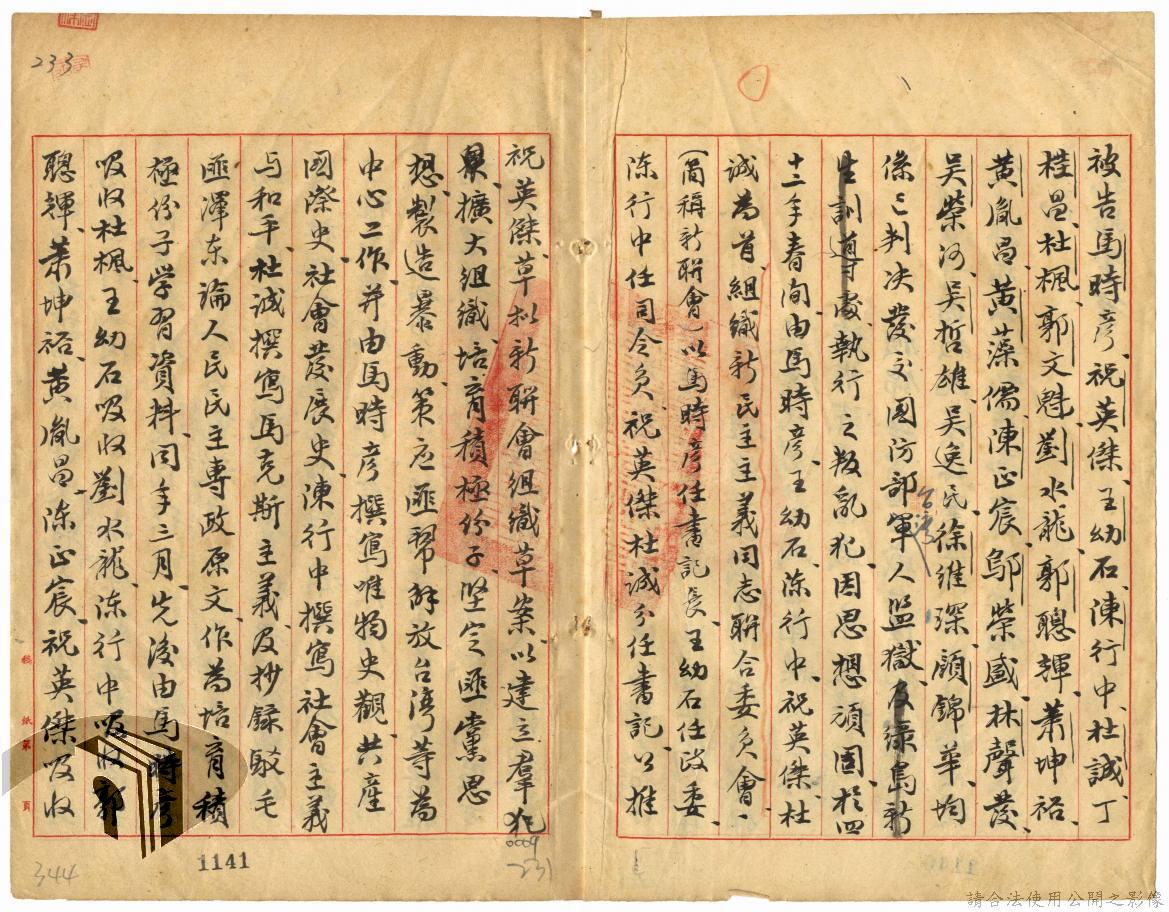 被告馬時彥、祝英傑、王幼石、陳行中、杜誠、丁
桂昌、杜楓、郭文魁、劉水龍、郭聰輝、蕭坤裕、
黃胤昌、黃藻儒、陳正宸、鄔榮盛、林聲發、
吳榮河、吳哲雄、吳逸民、徐維深、顧錦華、均
係已判決發交國防部軍人監獄及綠島新
台灣
生訓導處執行之叛亂犯、因思想頑固、於四
十二年春間由馬時彥、王幼石、陳行中、祝英傑、杜
誠為首、組織新民主主義同志聯合委員會、
(簡稱新聯會)以馬時彥任書記長、王幼石任政委、
陳行中任司令員、祝英傑杜誠分任書記、公推
祝英傑、草拟新聯會組織草案、以建立羣
眾、擴大組織、培育積極份子、堅定匪黨思
想、製造暴動、策应匪幫解放台湾等為
中心工作、并由馬時彥撰寫唯物史觀、共產
國際史、社會發展史、陳行中撰寫社會主義
与和平、杜誠撰寫馬克斯主義、及抄録駁毛
匪澤東論人民民主專政原文、作為培育積
極份子学習資料、同年三月、先後由馬時彥
吸收杜楓、王幼石吸收劉水龍、陳行中吸收郭
聰輝、蕭坤裕、黃胤昌、陳正宸、祝英傑吸收
犯
0009
231
233
344
1141
稿紙第 頁
請合法使用公開之影像